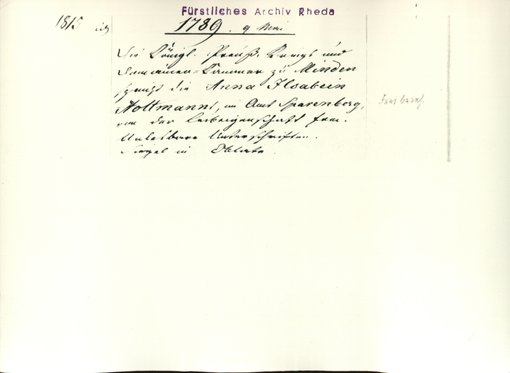 Fürstliches Archiv Rheda
1815
1789. 9 Mai
Die Königl. Preuß. Kriegs und
Domainen-Kammer zu Minden
die Anna Ilsabein
Nottmanns, im Amt Sparenberg,
von der Leibeigenschaft frei.
Unlesbare Unterschriften.
Siegel in Oblate.